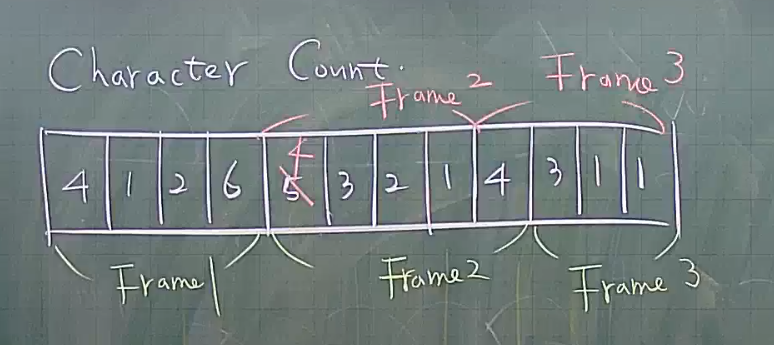 Character Count.
Frame 2 Frame 3
4 1 2 6 5 4 3 2 1 4 3 1 1
Frame1 Frame2 Frame 3